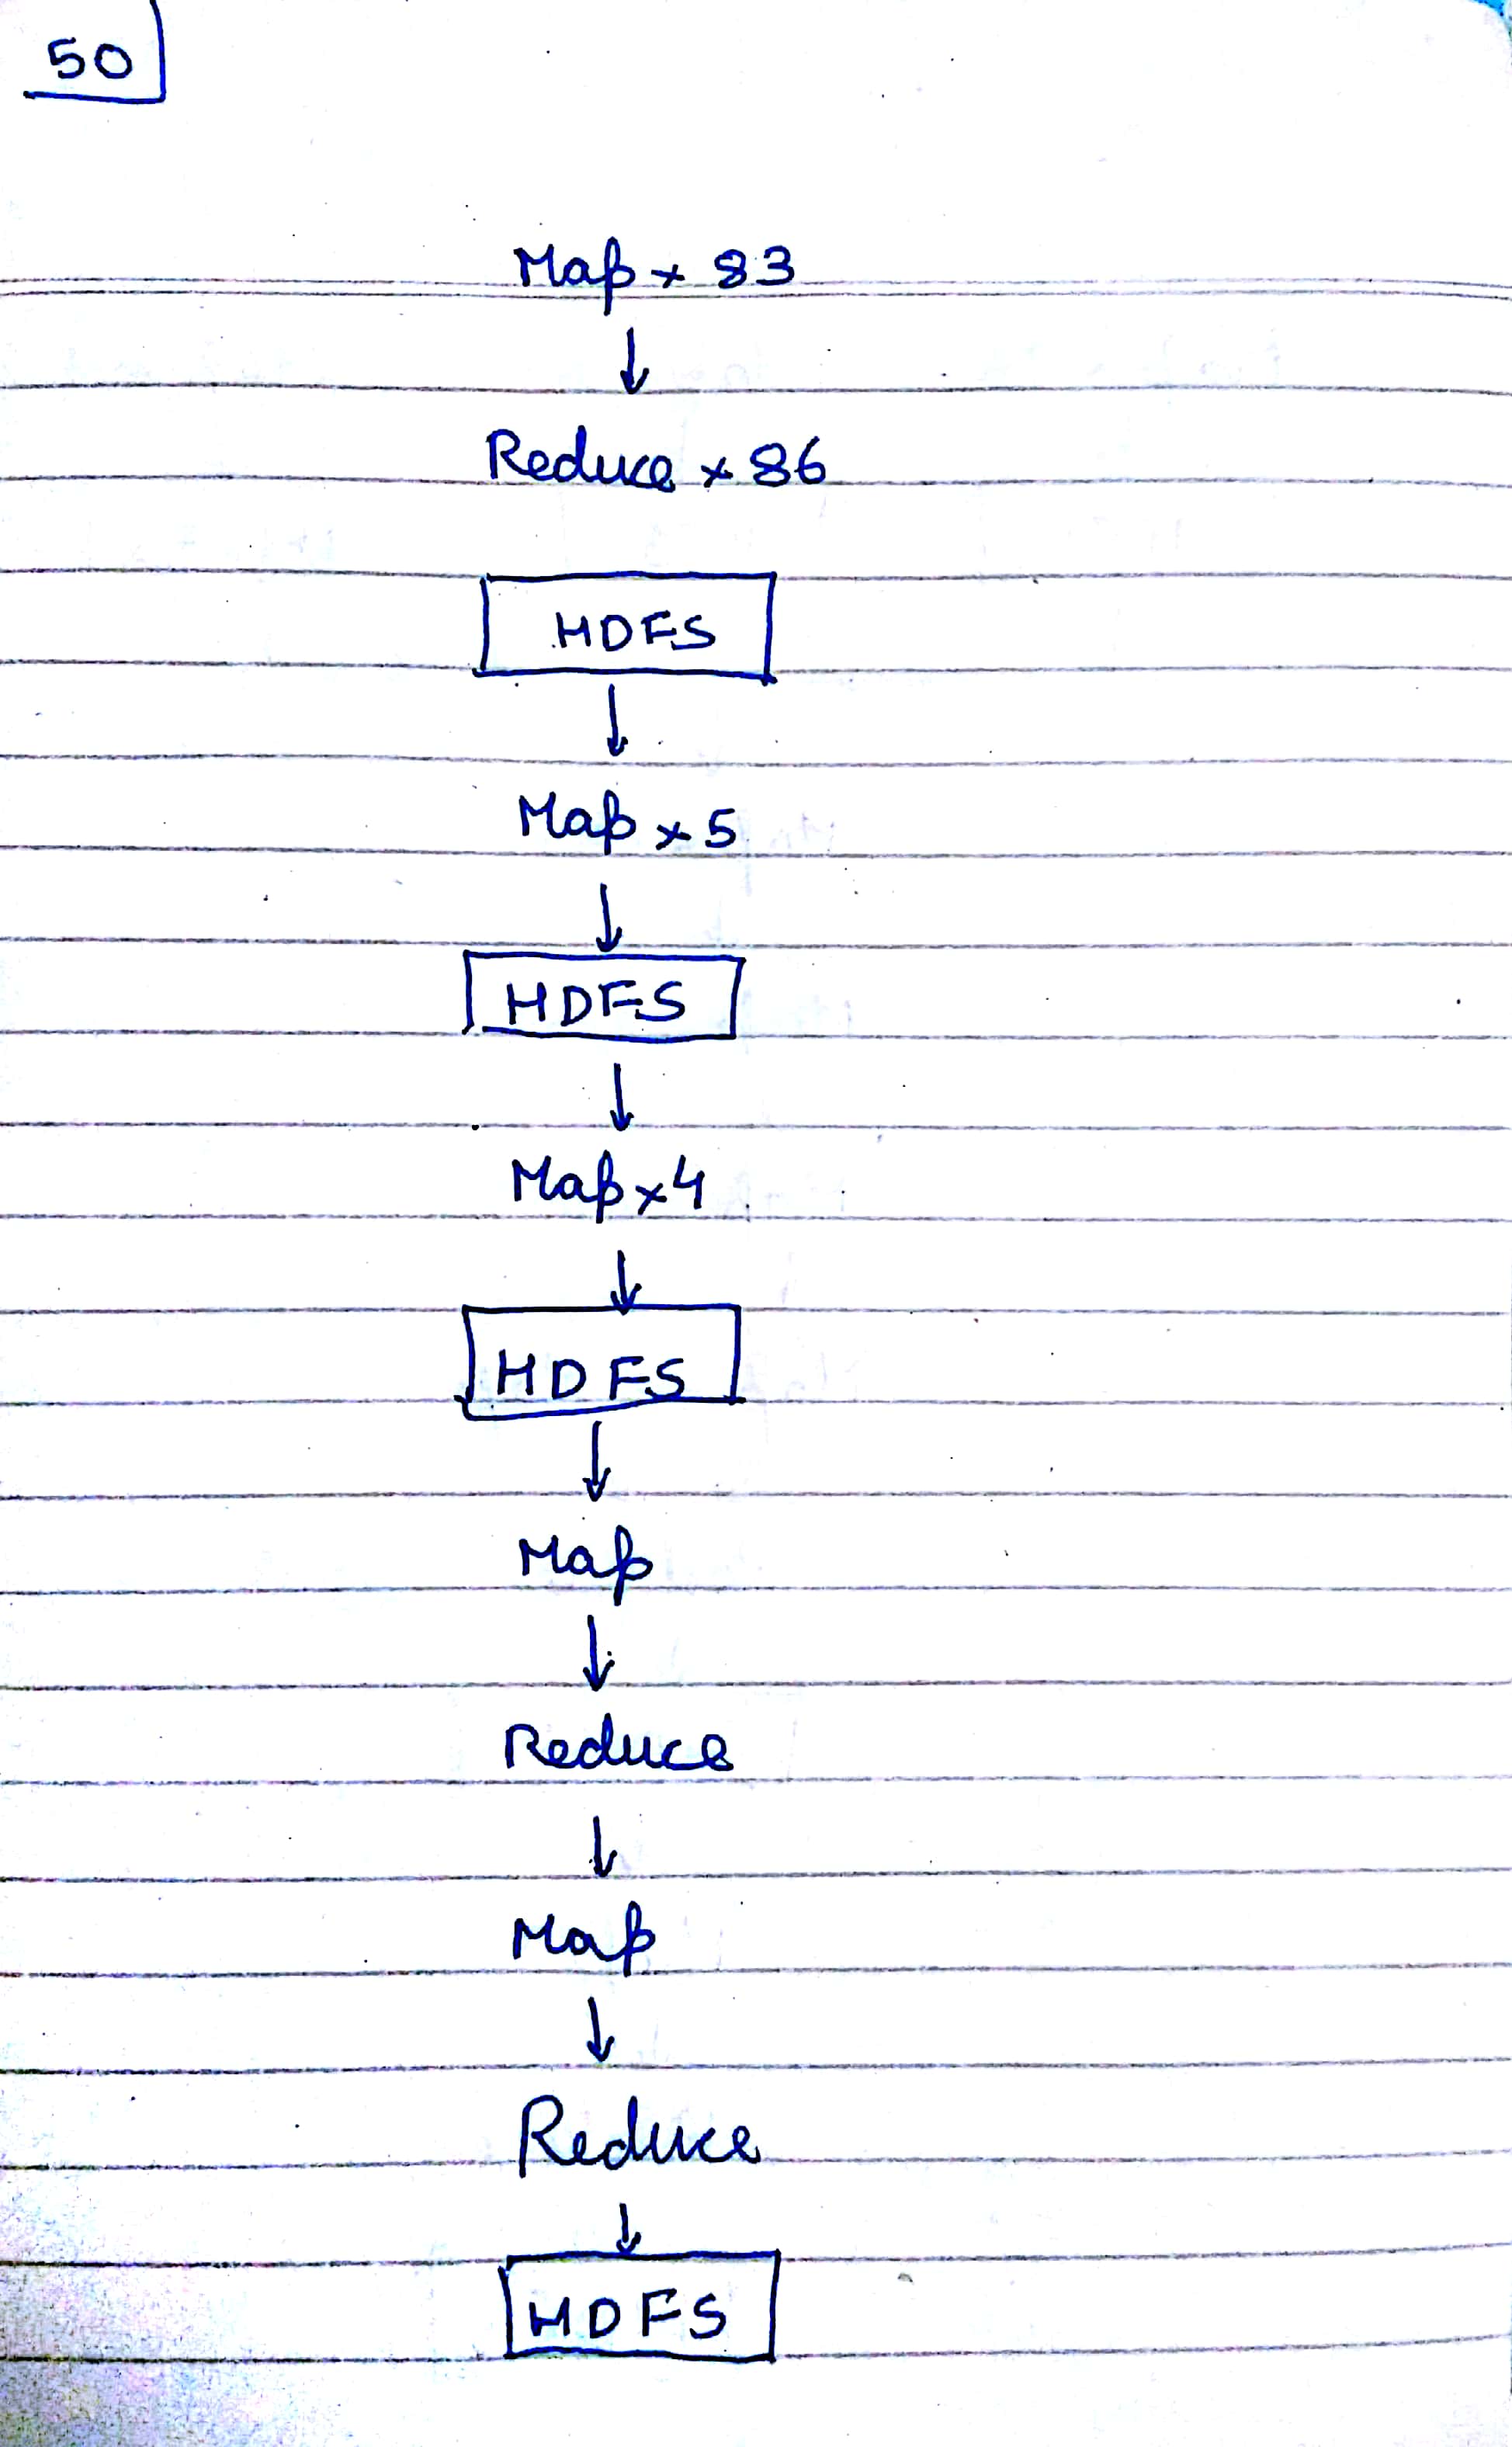 50
Map x 83
↓
Reduce x 86
HDFS
↓
Map x 5
↓
HDFS
↓
Map x 4
↓
HDFS
↓
Map
↓
Reduce
↓
Map
↓
Reduce
↓
HDFS